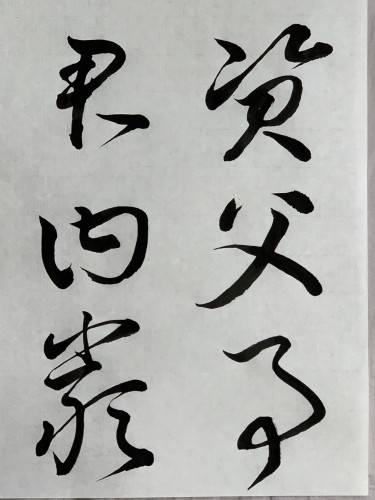 資父事
君曰嚴